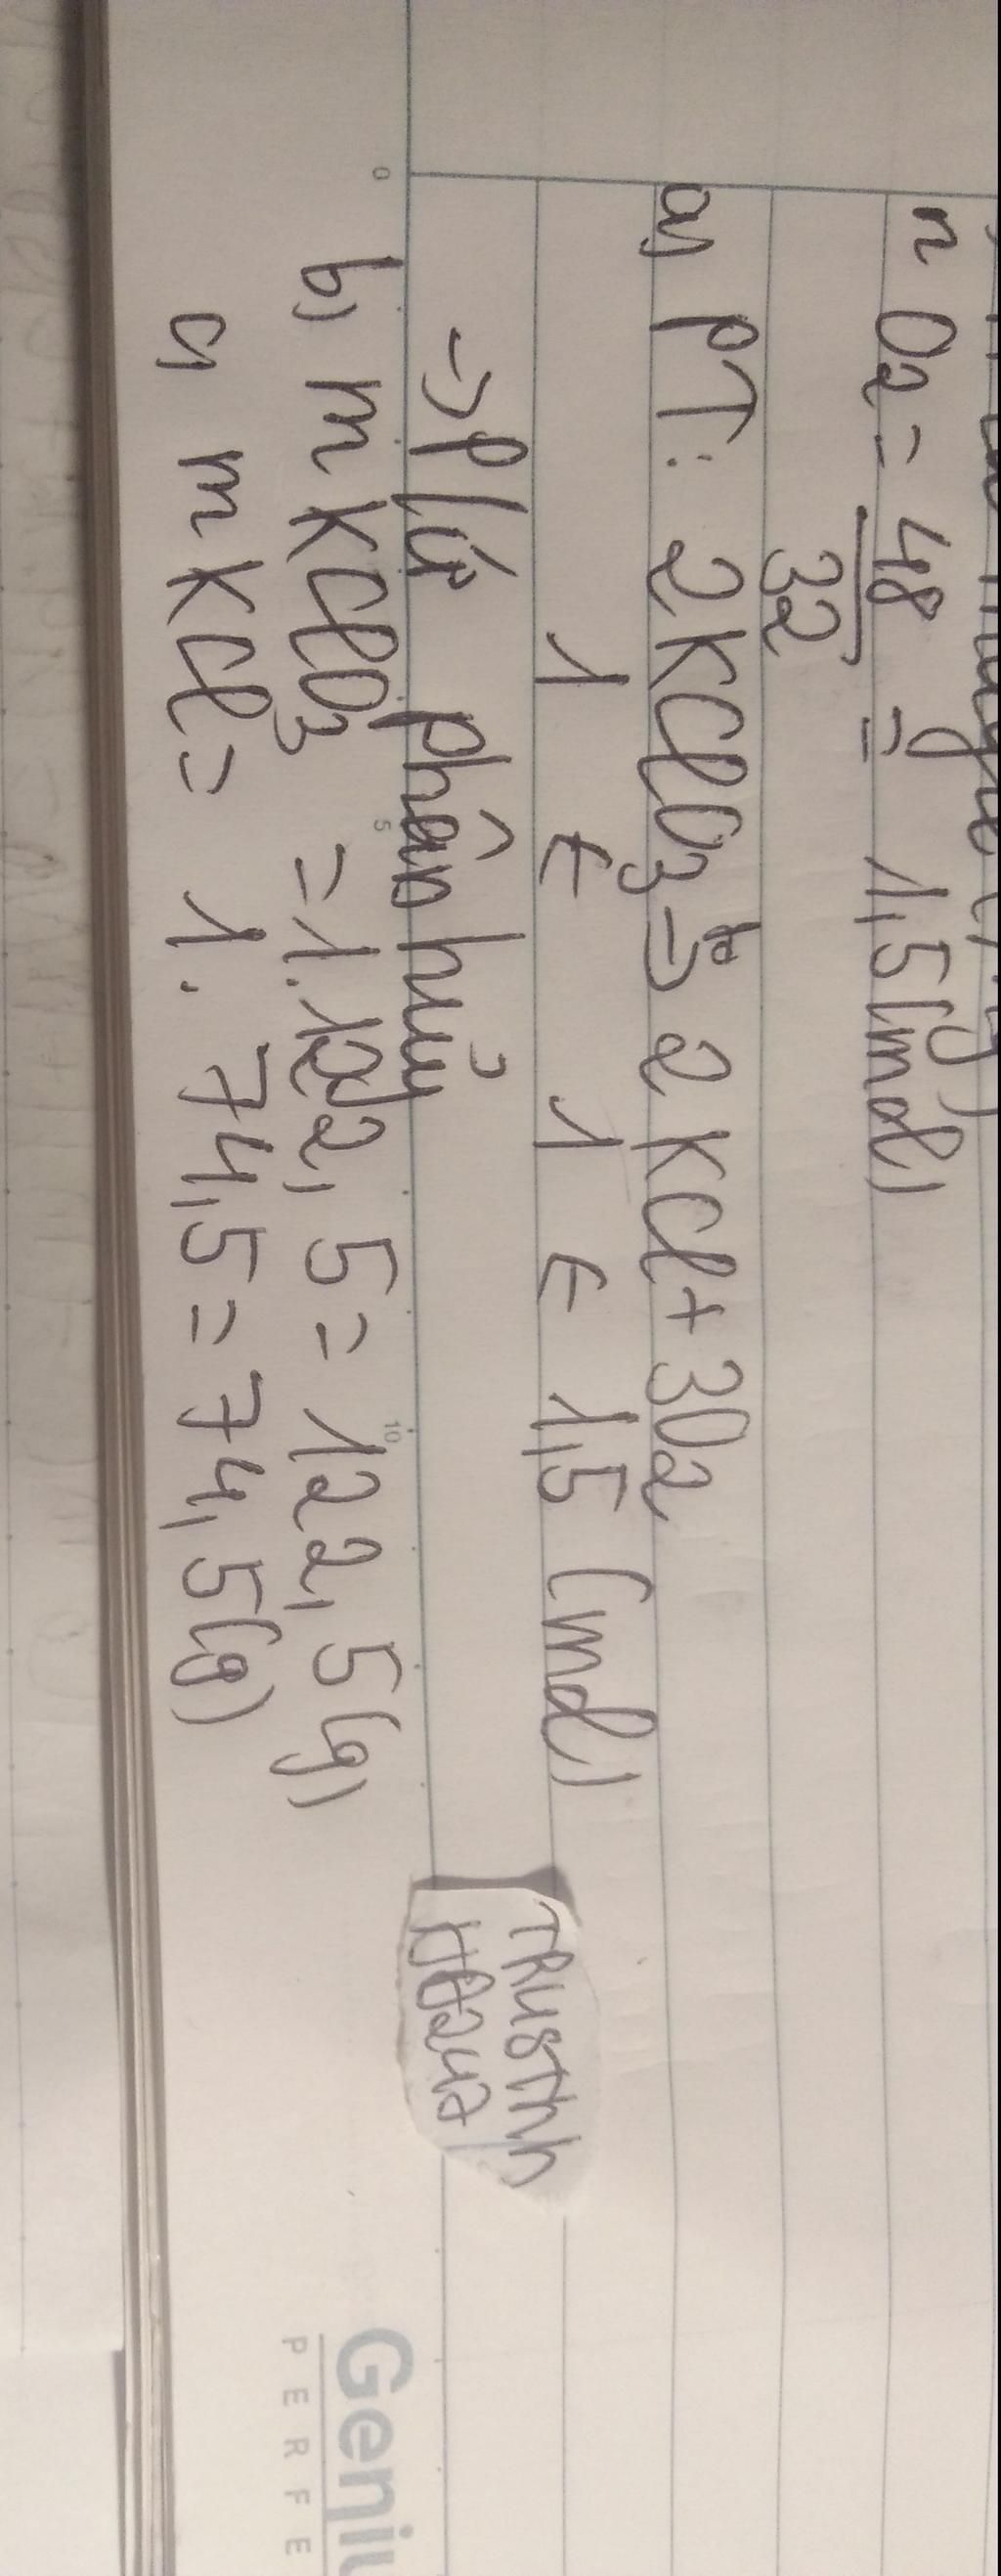 n O₂ = 48/32 = 1,5 (mol)
a, PT: 2KClO₃ →t° 2KCl + 3O₂
1 ← 1 ← 1,5 (mol)
→ P/ứ phân huỷ
b, m KClO₃ = 1.122,5 = 122,5 (g)
c, m KCl = 1. 74,5 = 74,5 (g)
TRUSTHh
HB247
Geniu
PERFE
0
5
10